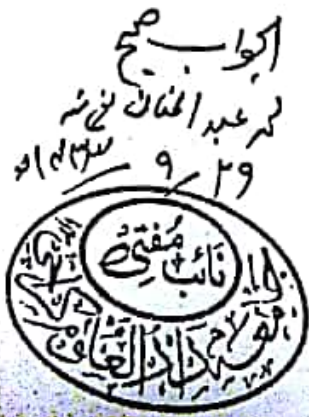 الجواب صحیح
محمد عبد المنان عفی عنہ
۲۹ / ۹
نائب مفتی
جامعہ دارالعلوم کراچی